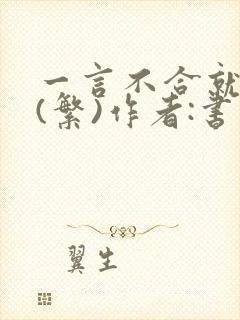 一言不合就
(繁)作者:書
翼生